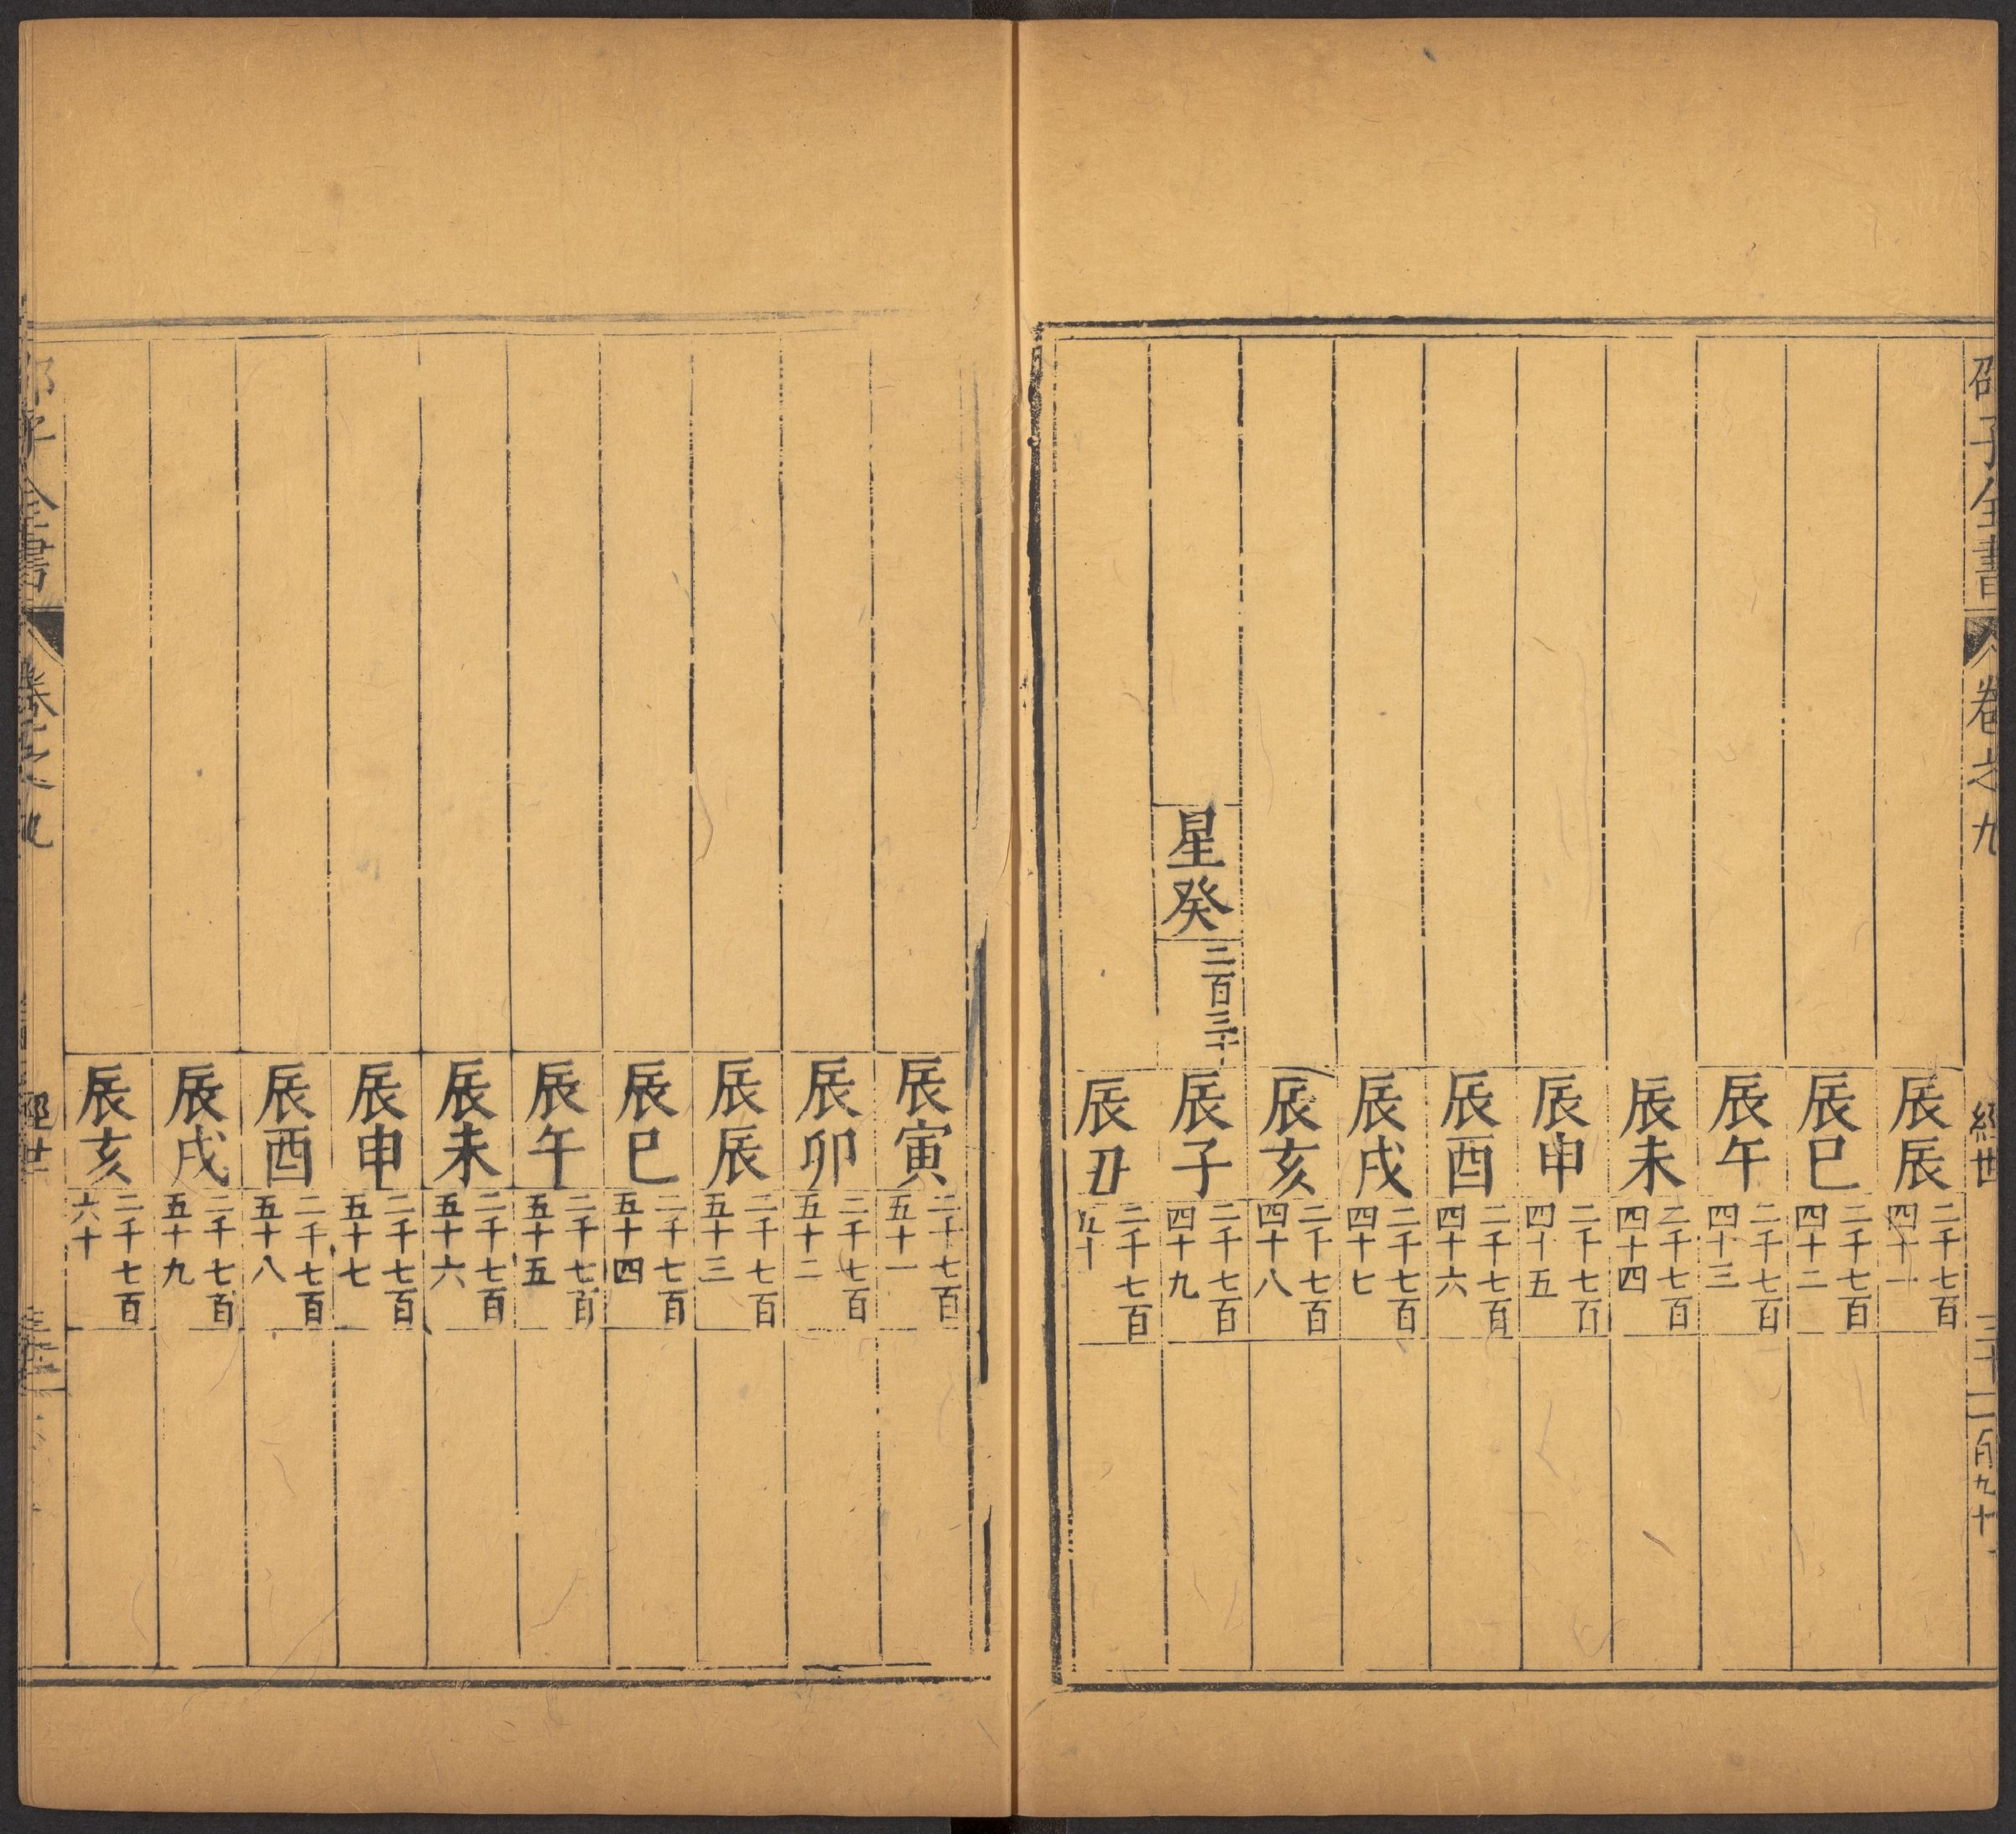 邵子全書
卷之九
經世
三十二
百九十
辰辰
二千七百
四十一
辰巳
二千七百
四十二
辰午
二千七百
四十三
辰未
二千七百
四十四
辰申
二千七百
四十五
辰酉
二千七百
四十六
辰戌
二千七百
四十七
辰亥
二千七百
四十八
星癸
三百三十
辰子
二千七百
四十九
辰丑
二千七百
五十
辰寅
二千七百
五十一
辰卯
二千七百
五十二
辰辰
二千七百
五十三
辰巳
二千七百
五十四
辰午
二千七百
五十五
辰未
二千七百
五十六
辰申
二千七百
五十七
辰酉
二千七百
五十八
辰戌
二千七百
五十九
辰亥
二千七百
六十